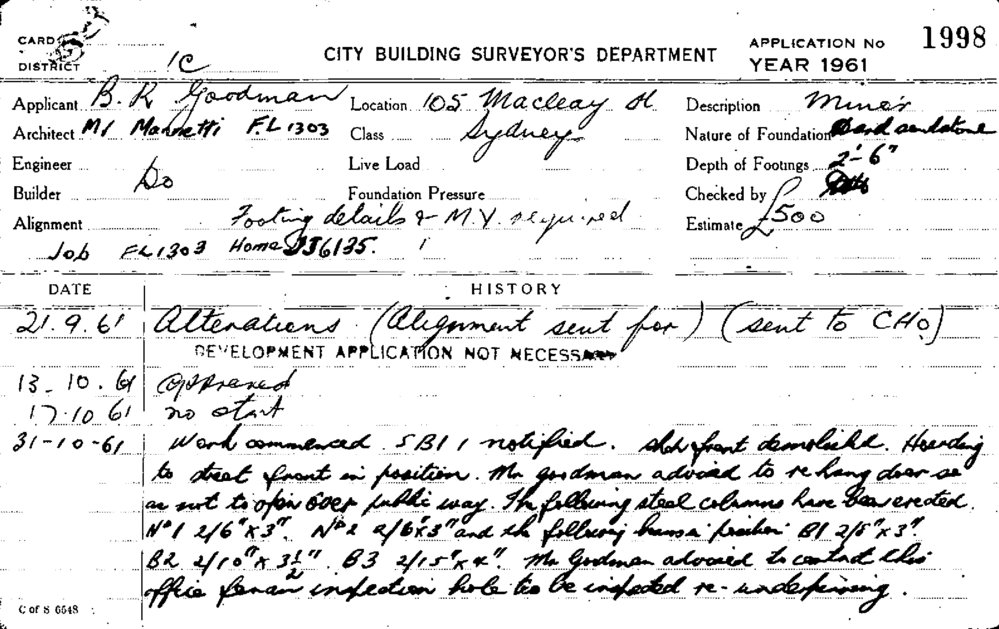 CARD
DISTRICT 1C
CITY BUILDING SURVEYOR'S DEPARTMENT
APPLICATION No 1998
YEAR 1961
Applicant B. R Goodman Location 105 Macleay St Description Minor
Architect Mr Mannetti F.L 1303 Class Sydney Nature of Foundation Hard sandstone
Engineer Live Load Depth of Footings 2'-6"
Builder Do Foundation Pressure Checked by
Alignment Footing details & M.Y. required Estimate £500
Job FL1303 Home JJ6135.
DATE HISTORY
21.9.61 Alterations. (Alignment sent for) (sent to CHO)
DEVELOPMENT APPLICATION NOT NECESSARY
13-10.61 approved
17.10 61 no start
31-10-61 Work commenced. SBI 1 notified. shop front demolished. Hoarding
to street front in position. Mr goodman advised to re hang door so
as not to open over public way. The following steel columns have been erected.
No 1 2/6"x3". No 2 2/6"x3" and the following beams in position B1 2/5"x3".
B2 2/10"x3½". B3 2/15"x4". Mr Goodman advised to contact this
office for an inspection hole to be inspected re-underpinning.
C of S 6648